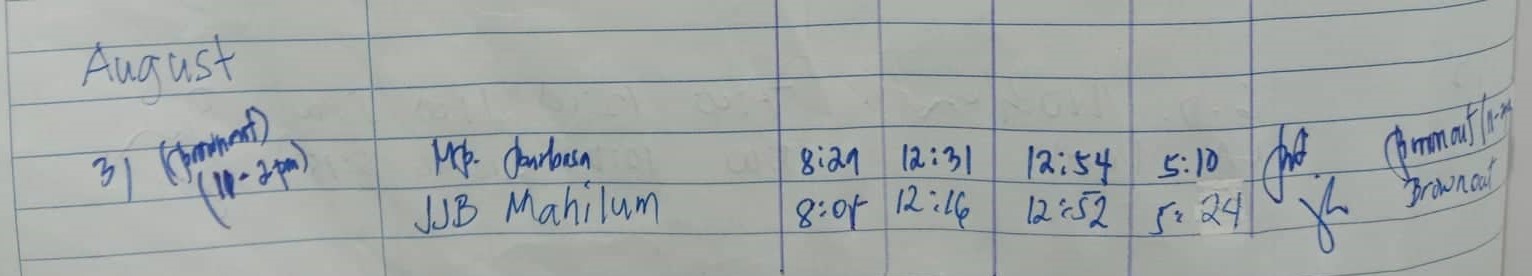 August
31 (Brownout) Mp. 8:29 12:31 12:54 5:10 Brownout (11-2
(11-2pm) JJB Mahilum 8:05 12:16 12:52 5:24 Brownout